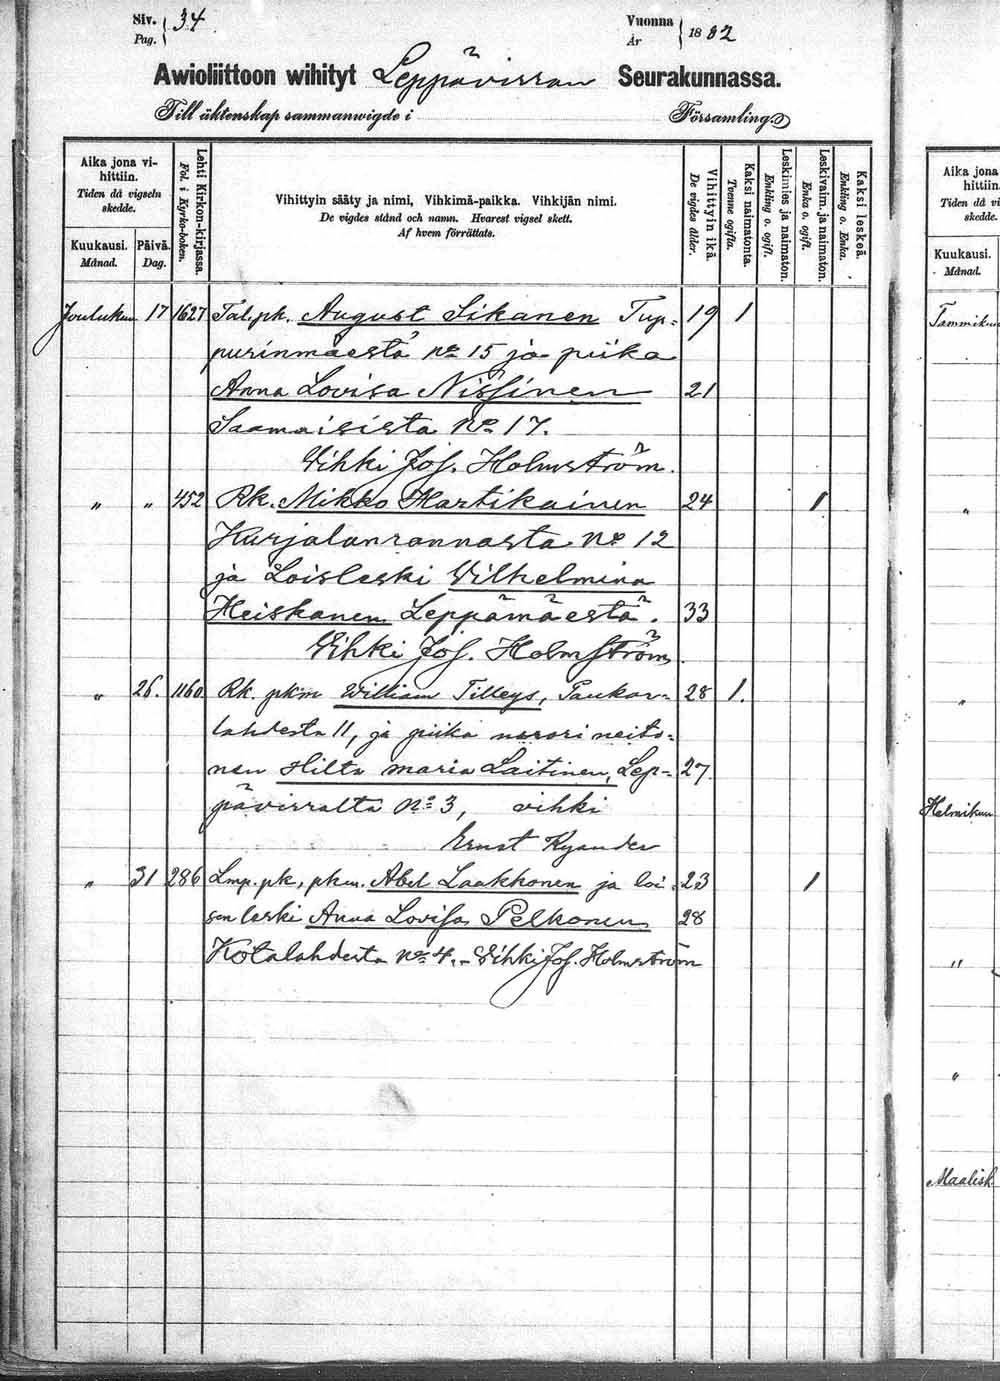 Siv. Pag. 34.
Vuonna År 1882
Awioliittoon wihityt Leppävirran Seurakunnassa.
Till äktenskap sammanwigde i Församling.
Aika jona vihittiin.
Tiden då vigseln skedde.
Kuukausi. Månad.
Päivä. Dag.
Lehti Kirkon-kirjassa.
Fol. i Kyrko-boken.
Vihittyin sääty ja nimi, Vihkimä-paikka. Vihkijän nimi.
De vigdes stånd och namn. Hvarest vigsel skett.
Af hvem förrättats.
Vihittyin ikä.
De vigdes ålder.
Kaksi naimatonta.
Tvenne ogifta.
Leskimies ja naimaton.
Enkling o. ogift.
Leskivaim. ja naimaton.
Enka o. ogift.
Kaksi leskeä.
Enkling o. Enka.
Joulukuu 17 1627 Tal.pk. August Sikanen Tup= 19 1
purinmäestä No 15 ja piika
Anna Lovisa Nissinen 21
Saamaisista No 17.
Vihki Jos. Holmström.
" " 452 Rk. Mikko Hartikainen 24 1
Kurjalanrannasta No 12
ja Loisleski Vilhelmina
Heiskanen Leppämäestä. 33
Vihki Jos. Holmström.
" 26. 1160 Rk. pkm William Tilleys, Paukar= 28 1.
lahdesta 11, ja piika nuori neito=
nen Hilta Maria Laitinen, Lep= 27
pävirralta No 3, vihki
Ernst Kyander
" 31 286 Lmp. pk, pkm. Abel Laakkonen ja loi= 23 1
sen leski Anna Lovisa Pelkonen 28
Kotalahdesta No 4. - Vihki Jos. Holmström
Aika jona
hittiin.
Tiden då vi
skedde.
Kuukausi.
Månad.
Tammikuu
"
"
Helmikuu
"
"
Maalisk.